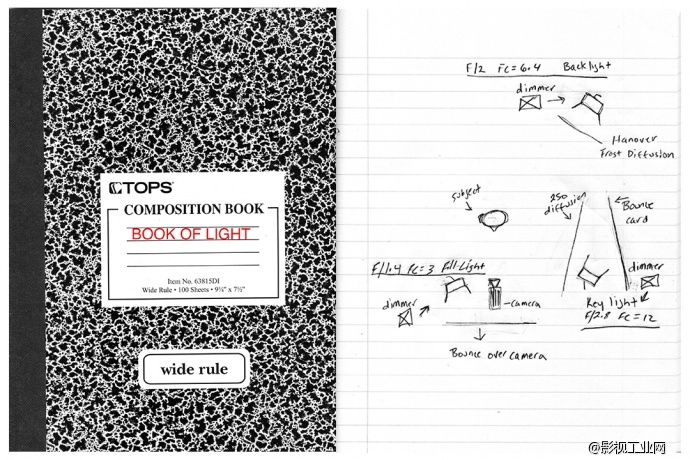 TOPS®
COMPOSITION BOOK
BOOK OF LIGHT
Item No. 63815DI
Wide Rule • 100 Sheets • 9¾" x 7½"
wide rule
F/2 FC=6.4 Backlight
dimmer
Hanover
Frost Diffusion
Subject
250
diffusion
Bounce
card
F/1.4 FC=3 Fill-Light
dimmer
camera
dimmer
Key light
F/2.8 FC=12
Bounce over camera
@影视工业网